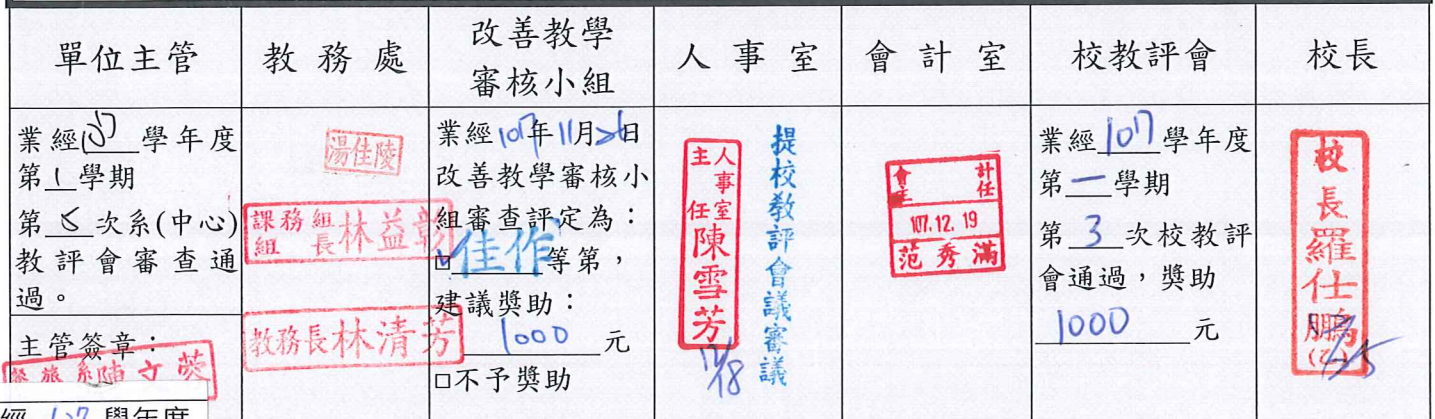 單位主管
教務處
改善教學
審核小組
人事室
會計室
校教評會
校長
業經107學年度
第1學期
第5次系(中心)
教評會審查通
過。
主管簽章：
餐旅系陳文英
經107學年度
湯佳陵
課務組組長林益彰
教務長林清芳
業經107年11月26日
改善教學審核小
組審查評定為：
佳作等第，
建議獎助：
1000元
□不予獎助
人事室主任陳雪芳
12/18
提校教評會議審議
會計主任
107.12.19
范秀滿
業經107學年度
第一學期
第3次校教評
會通過，獎助
1000元
校長羅仕鵬(乙)